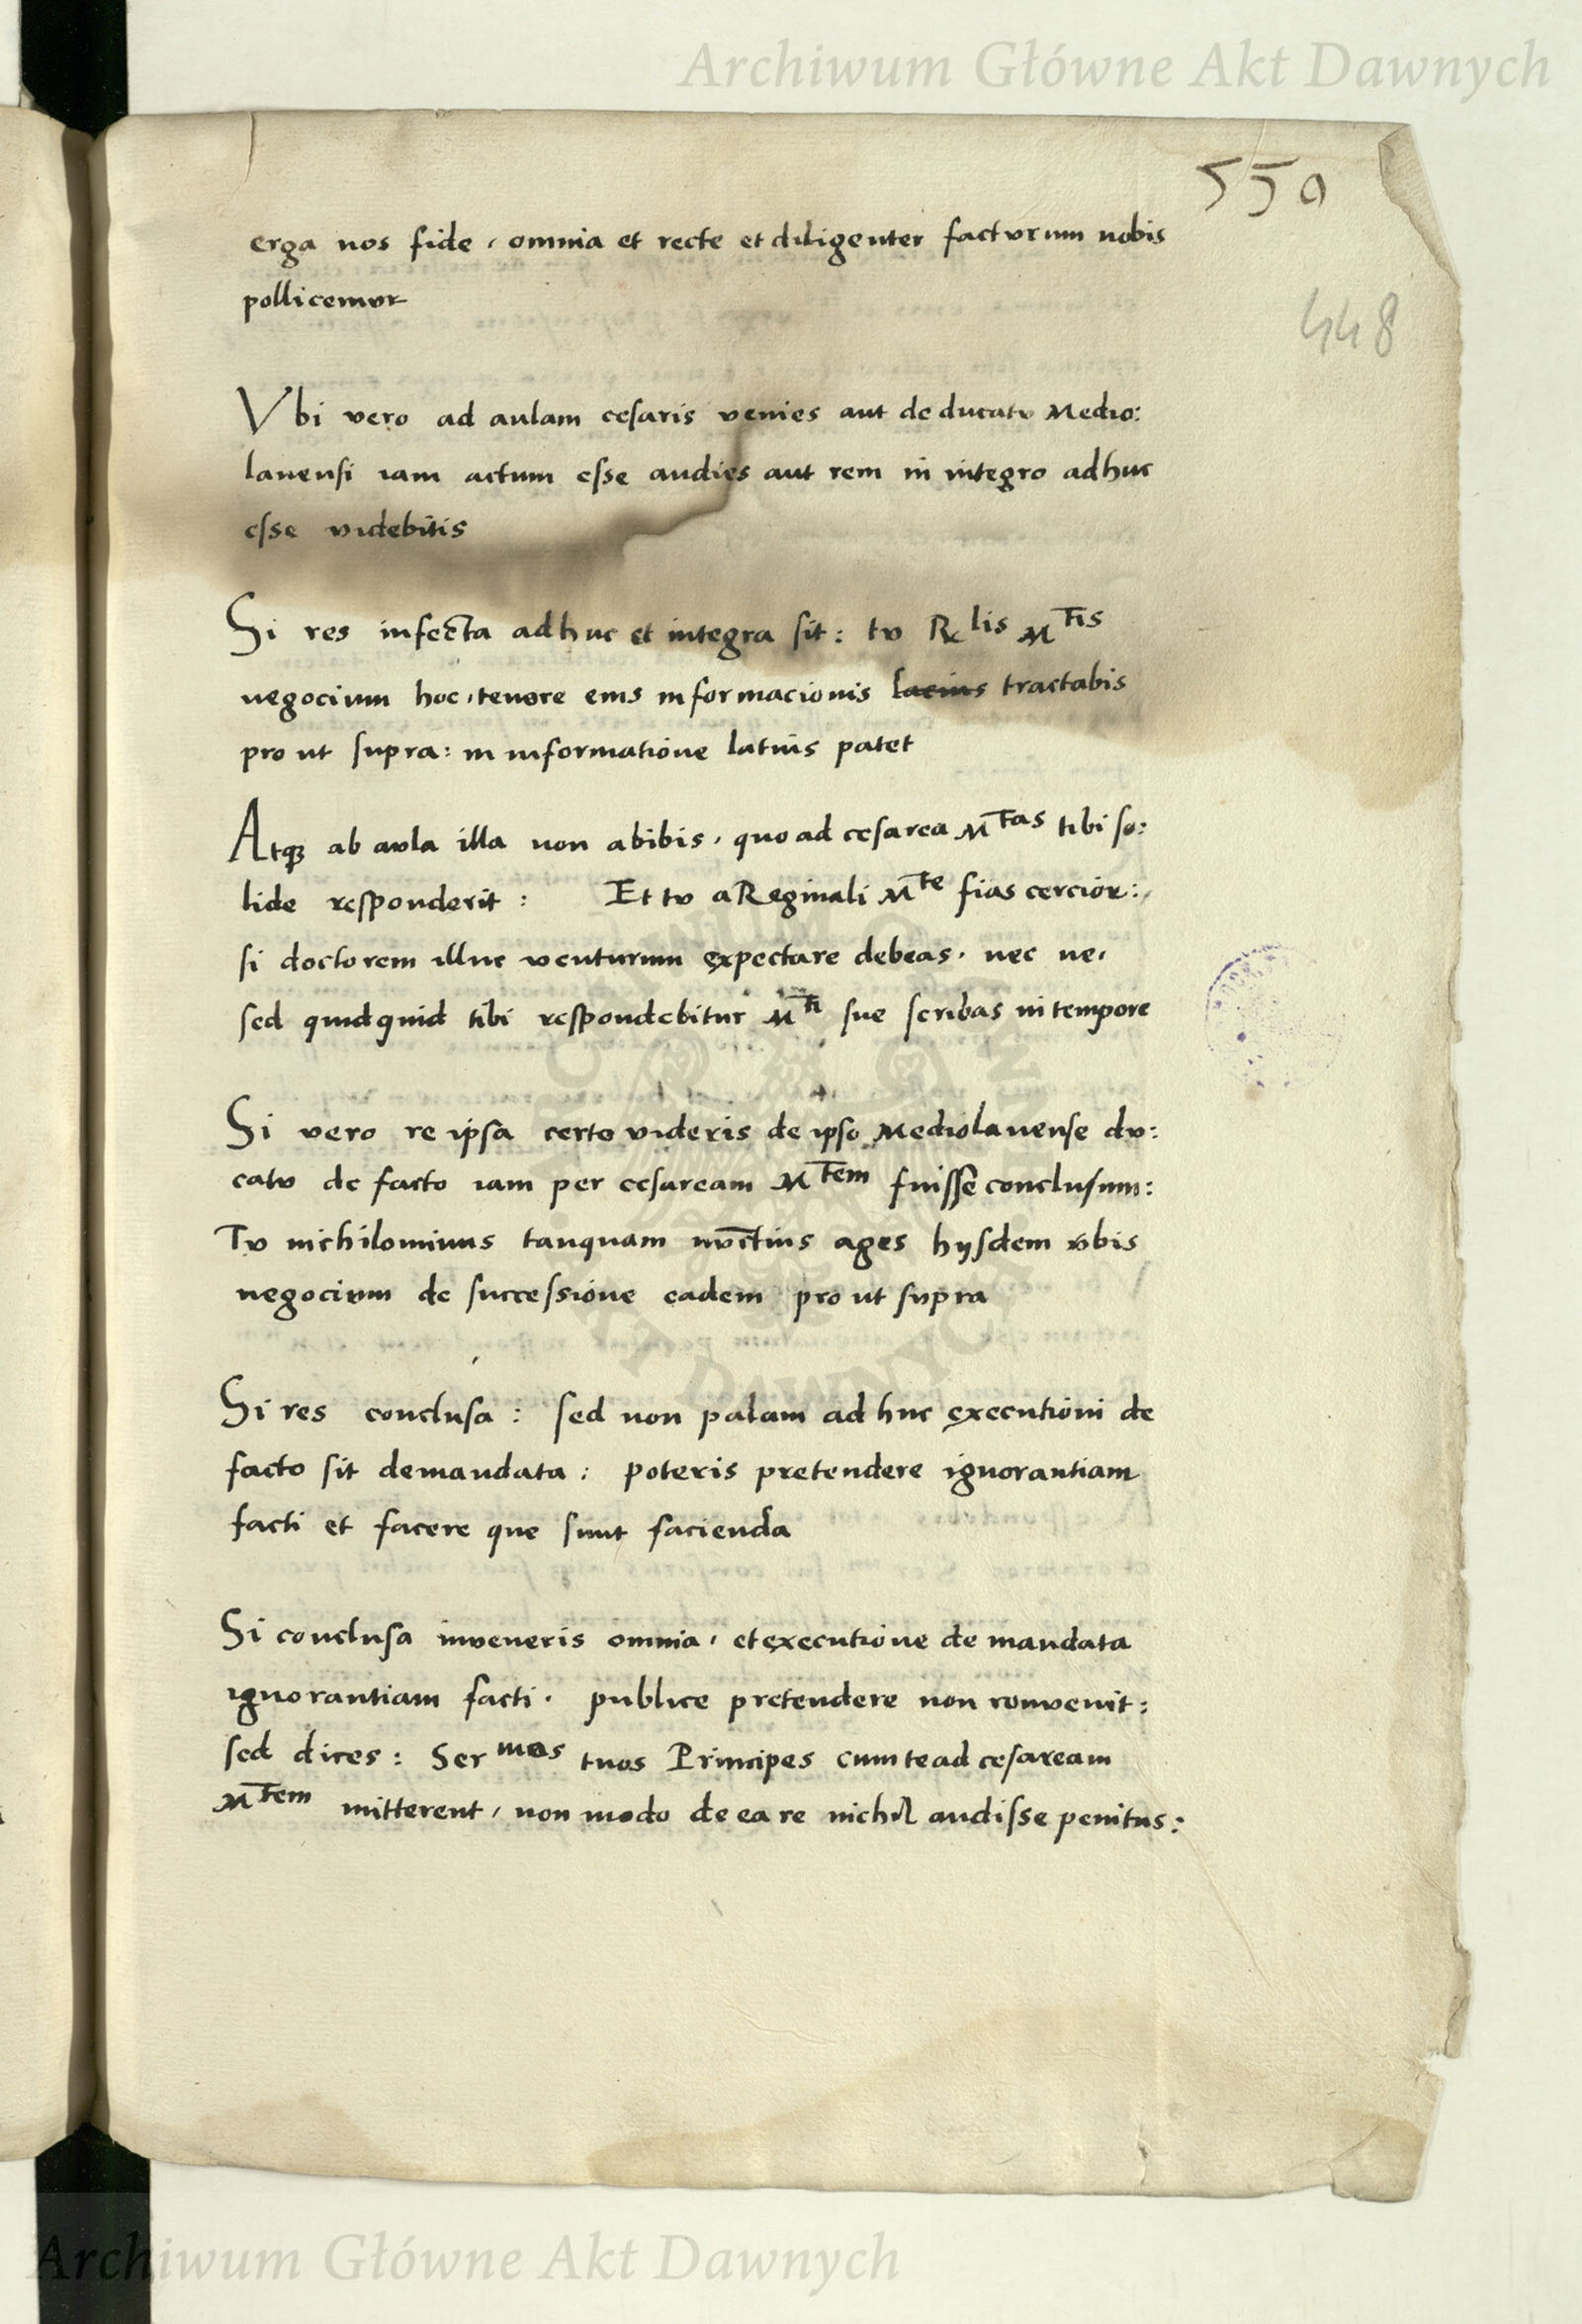 Archiwum Główne Akt Dawnych
550
448
erga nos fide, omnia et recte et diligenter facturum nobis
pollicemur
Ubi vero ad aulam cesaris venies aut de ducatu Medio:
lanensi iam actum esse audies aut rem in integro adhuc
esse videbitis
Si res infecta adhuc et integra sit: tu Rlis Mtis
negocium hoc, tenore eius informacionis lacius tractabis
pro ut supra: in informatione latius patet
Atque ab aula illa non abibis, quo ad cesarea Mtas tibi so:
lide responderit: Et tu a Reginali Mte fias cercior:
si doctorem illuc venturum expectare debeas, nec ne,
sed quidquid tibi respondebitur Mti sue scribas in tempore
Si vero re ipsa certo videris de ipso Mediolanense du:
catu de facto iam per cesaream Mtem fuisse conclusum:
Tu nichilominus tanquam nuctius ages hysdem vbis
negocium de successione eadem pro ut supra
Si res conclusa: sed non palam adhuc executioni de
facto sit demandata: poteris pretendere ignorantiam
facti et facere que sunt facienda
Si conclusa inveneris omnia, et executione demandata
ignorantiam facti. publice pretendere non convenit:
sed dices: Sermos tuos Principes cum te ad cesaream
Mtem mitterent, non modo de ea re nichil audisse penitus:
Archiwum Główne Akt Dawnych